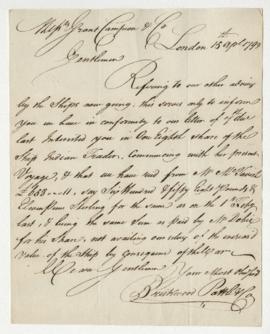 Messrs. Grant Campion & Co
London 15th Apl 1793
Gentlemen
Refering to our other advices
by the Ships now going, this serves only to inform
you we have in conformity to our letter of
last Interested you in One Eighth Share of the
Ship Indian Trader, Commencing with her present
Voyage, & that we have recd from Mr
£658-11, say Six Hundred & fifty Eight Pounds &
Eleven Sterling for the same as on the
last, & being the same Sum as paid by Mr
for his Share, not availing ourselves of the encreased
value of the Ship by consequence of the War
We are Gentlemen
Your Most
Brickwood Pattle & Co